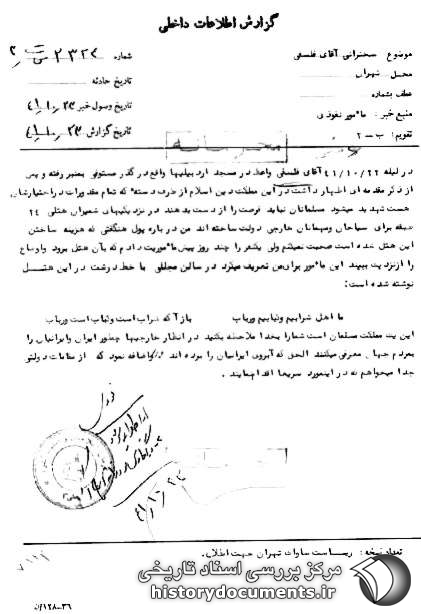 گزارش اطلاعات داخلی
موضوع : سخنرانی آقای فلسفی
شماره ۲۳۲۴
محل : تهران
تاریخ حادثه
عطف بشماره
تاریخ وصول خبر ۴۱/۱۰/۲۳
منبع خبر : مأمور نفوذی
تاریخ گزارش ۴۱/۱۰/۲۳
تقویم : ب - ۲
در لیله ۴۱/۱۰/۲۲ آقای فلسفی واعظ در مسجد اردبیلیها واقع در گذر مستوفی بمنبر رفته و پس
از ذکر مقدمه‌ای اظهار داشت در این مملکت دین اسلام از طرف دسته که تمام مقدورات در اختیارشان
هست تهدید میشود مسلمانان نباید فرصت را از دست بدهند در نزدیکیهای شمیران هتلی ۲۴
طبقه برای سیاحان و مهمانان خارجی دولت ساخته‌اند من در باره پول هنگفتی که هزینه ساختن
این هتل شده است صحبت نمیکنم ولی یکنفر را چند روز پیش مأموریت دادم که بآن هتل برود و اوضاع
را از نزدیک ببیند این مأمور برای من تعریف میکرد در سالن مجللی با خط درشت در این هتل
نوشته شده است:
ما اهل شرابیم و کبابیم و رباب
باز آ که شراب است و کباب است و رباب
این یک مملکت مسلمان است شما را بخدا ملاحظه بکنید در انظار خارجیها چطور ایران و ایرانیان را
بمردم جهان معرفی میکنند الحق که آبروی ایرانیان را برده‌اند و اضافه نمود که از مقامات دولتی
جدا میخواهم که در اینمورد سریعا اقدام نمایند .
تعداد نسخه : ریاست ساواک تهران جهت اطلاع.
مرکز بررسی اسناد تاریخی
historydocuments.ir
۳۶-۱۲۸